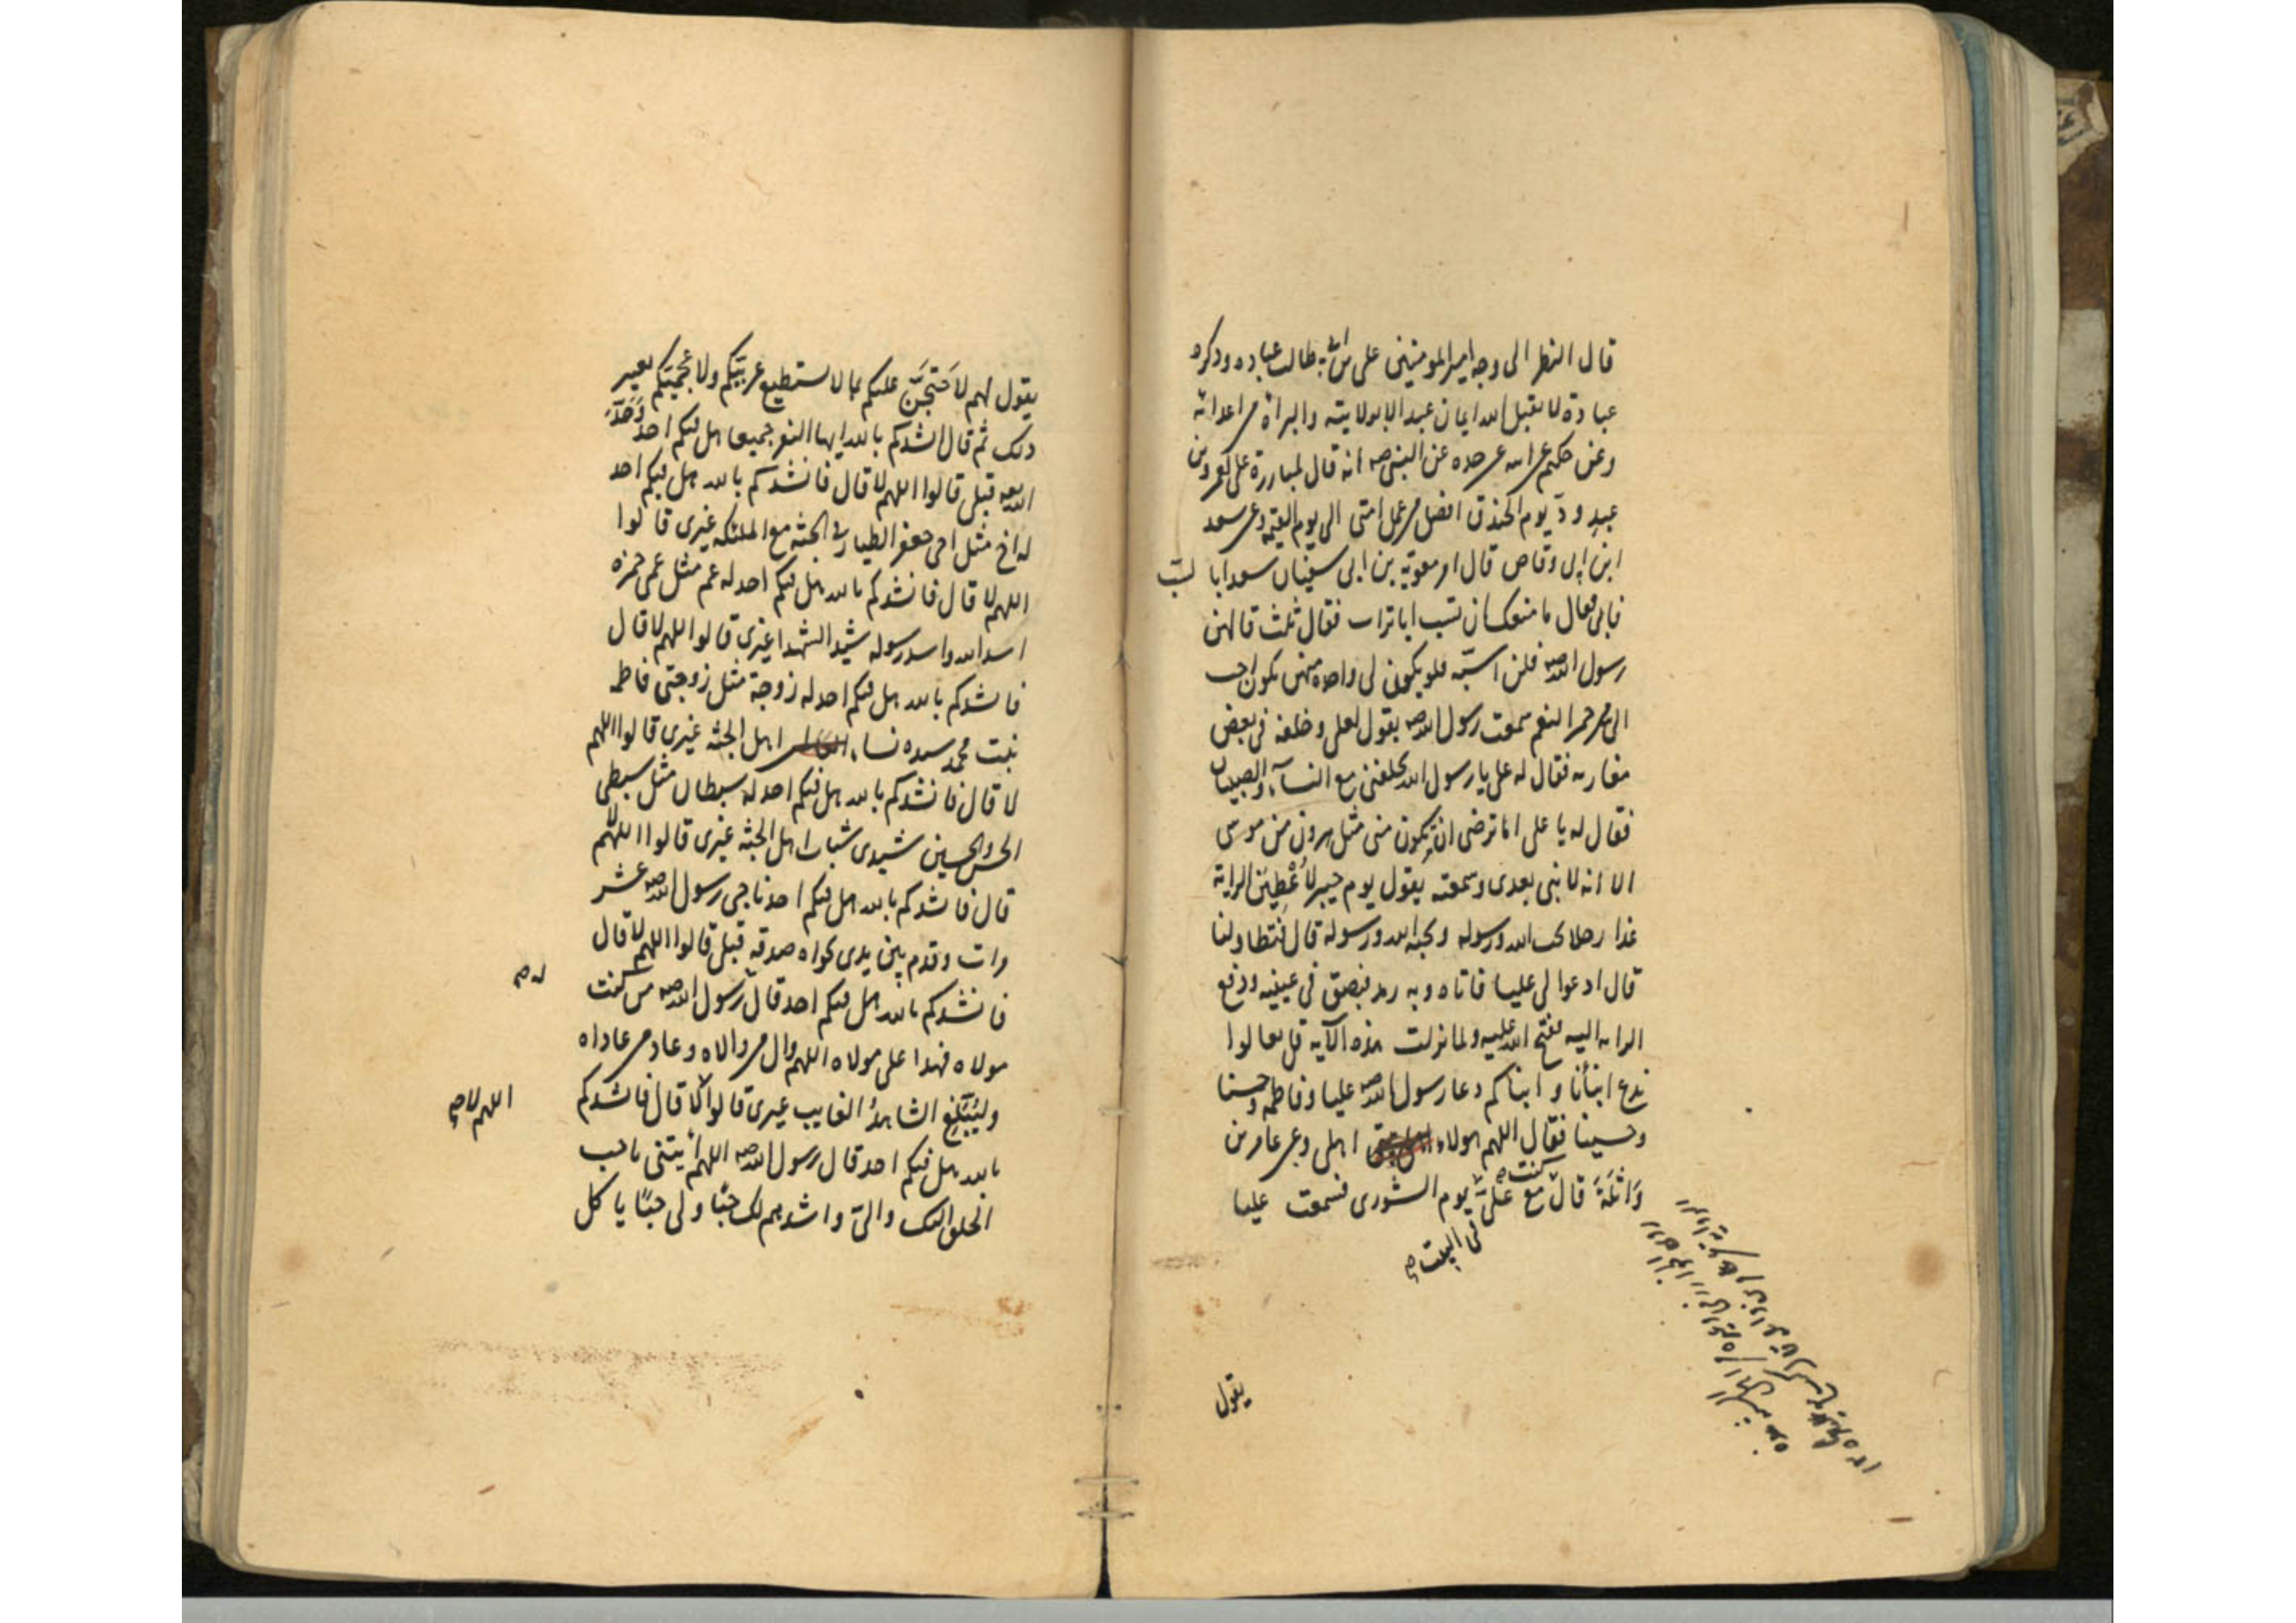 قال النظر الى وجه امير المومنين على بن ابى طالب عباده وذكره
عبادة لا يقبل الله ايمان عبد الا بولايته والبراة من اعدائه
وعن حكيم عن ابيه عن جده عن النبى صه انه قال لمبارزة على لعمرو بن
عبد ودّ يوم الخندق افضل من عمل امتى الى يوم القيمة وعن سعد
ابن ابى وقاص قال امر معوية بن ابى سفيان سعدا بالسبّ
فابى فقال ما منعك ان تسب ابا تراب فقال ثلث قالهن
رسول الله صه فلن اسبّه فلو يكون لى واحدة منهن يكون احب
الى من حمر النعم سمعت رسول الله صه يقول لعلى وخلفه فى بعض
مغازيه فقال له على يا رسول الله تخلفنى مع النسآء والصبيان
فقال له يا على اما ترضى ان تكون منى مثل هرون من موسى
الا انه لا نبى بعدى وسمعته يقول يوم خيبر لأُعْطِيَن الراية
غدا رجلا يحب الله ورسوله ويحبه الله ورسوله قال فتطاولنا
قال ادعوا لى عليا فاتاه وبه رمد فبصق فى عينيه ودفع
الراية اليه ففتح الله عليه ولما نزلت هذه الآية قل تعالوا
ندع ابنأنا و ابناكم دعا رسول الله صه عليا وفاطمه وحسنا
وحسينا فقال اللهم هولاء اهلى وعن عامر بن
وَاثلَةَ قال كنت مع عَلىّ يوم الشورى فسمعت عليا
فى البيت صح
يقول
يقول لهم لاَحتجَنَّ عليكم بما لا يستطيع عربيّكم ولا عجميّكم يغير
ذلك ثم قال انشدكم بالله ايها النفر جميعا هل فيكم احد وَحّدَ
الله صه قبلى قالوا اللهم لا قال فانشدكم بالله هل فيكم احد
له اخ مثل اخى جعفر الطيار فى الجنّه مع الملئكه غيرى قالوا
اللهم لا قال فانشدكم بالله هل فيكم احد له عم مثل عمى حمزه
اسد الله واسد رسوله سيّد الشهدا غيرى قالوا اللهم لا قال
فانشدكم بالله هل فيكم احد له زوجة مثل زوجتى فاطمه
بنت محمد سيده نساء اهل الجنّه غيرى قالوا اللهم
لا قال فانشدكم بالله هل فيكم احد له سبطان مثل سبطى
الحسن والحسين سيدى شباب اهل الجنّه غيرى قالوا اللهم لا
قال فانشدكم بالله هل فيكم احد ناجى رسول الله صه عشر
مرات وقدم بين يدى نجواه صدقه قبلى قالوا اللهم لا قال
فانشدكم بالله هل فيكم احد قال رسول الله صه من كنت
له صح
مولاه فهذا على مولاه اللهم وال من والاه وعاد من عاداه
وليُبَلّغ الشاهدُ الغايب غيرى قالوا لا قال فانشدكم
اللهم لا صح
بالله هل فيكم احد قال رسول الله صه اللهم ايتنى باحب
الخلق اليك والىّ واشدهم لك حبًّا ولى حبًّا ياكل